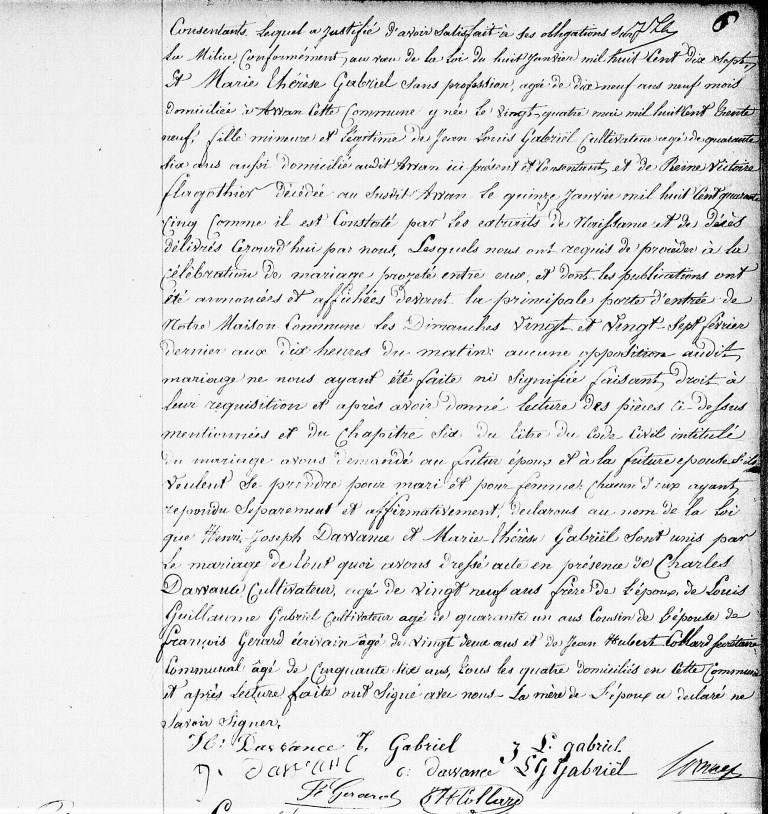 6
Consentants. Lequel a justifié d'avoir satisfait à ses obligations sur
la Milice Conformément au vœu de la loi du huit Janvier mil huit Cent dix Sept,
Et Marie Thérèse Gabriel Sans profession, agée de dix neuf ans neuf mois
domiciliée à Awan Cette Commune y née le vingt-quatre mai mil huit Cent trente
neuf, fille mineure et légitime de Jean Louis Gabriël Cultivateur agé de quarante
six ans aussi domicilié audit Awan ici présent et Consentant, et de Reine Victoire
flagothier décédée au susdit Awan le quinze Janvier mil huit Cent quarante
Cinq Comme il est Constaté par les extraits de Naissame et de décès
délivrés Cejourd'hui par nous, Lesquels nous ont requis de procéder à la
Célébration de mariage projeté entre eux, et dont les publications ont
été annoncées et affichées devant la principale porte d'entrée de
Notre Maison Commune les Dimanches vingt et vingt-Sept février
dernier aux dix heures du matin: aucune opposition audit
mariage ne nous ayant été faite ni signifiée faisant, droit à
leur requisition et après avoir donné lecture des pièces ci-dessus
mentionnées et du Chapitre Six du titre du Code Civil intitulé
du mariage avons demandé au futur époux et à la future epouse s'ils
veulent se prendre pour mari et pour femme: Chacun d'eux ayant,
repondu Séparement et affirmativement, declarons au nom de la loi
que Henri-Joseph Dawance et Marie-Thérèse Gabriël sont unis par
le mariage de tout quoi avons dressé acte en présence de Charles
Dawance Cultivateur, agé de vingt neuf ans frère de l'époux, de Louis
Guillaume Gabriel Cultivateur agé de quarante un ans Cousin de l'épouse de
françois Gerard écrivain agé de vingt deux ans et de Jean Hubert Collard Secrétaire
Communal âgé de Cinquante six ans, tous les quatre domiciliés en Cette Commune
et après lecture faite ont Signé avec nous- la mère de l'epoux a déclaré ne
savoir signer.
H: Dawance t. Gabriel J L: gabriel.
c: dawance LG Gabriël
Fs Gerard JH Collard